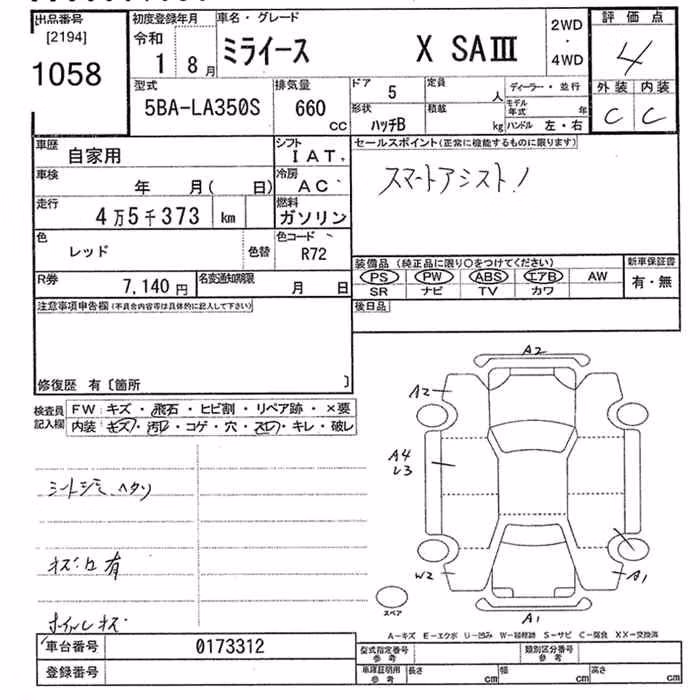 出品番号
[2194]
1058
初度登録年月
令和
1 8月
車名・グレード
ミライース X SAⅢ
2WD
・
4WD
評価点
4
外装 内装
C C
型式
5BA-LA350S
排気量
660
CC
ドア
5
形状
ハッチB
定員
人
積載
kg
ディーラー・並行
モデル年式 年
ハンドル 左・右
車歴
自家用
シフト
IAT
車検
年 月( 日)
冷房
AC
走行
4万5千373 km
燃料
ガソリン
色
レッド
色替
色コード
R72
R券
7,140円
名変通知期限
月 日
セールスポイント(正常に機能するものに限ります)
スマートアシスト!
装備品 (純正品に限り○をつけてください)
PS PW ABS エアB AW
SR ナビ TV カワ
新車保証書
有・無
後日品
注意事項申告欄(不具合内容等は具体的に記入して下さい)
修復歴 有〔箇所 〕
検査員
記入欄
FW:キズ・飛石・ヒビ割・リペア跡・×要
内装:キズ・汚レ・コゲ・穴・スレ・キレ・破レ
シートジミ ヘタリ
ネジロ有
ホイルキズ
A2
A2
A4
レ3
W2
A1
A1
スペア
A-キズ E-エクボ U-凹み W-補修跡 S-サビ C-腐食 XX-交換済
車台番号
0173312
登録番号
型式指定番号
参考
類別区分番号
参考
車庫証明用
参考
長さ cm
幅 cm
高さ cm